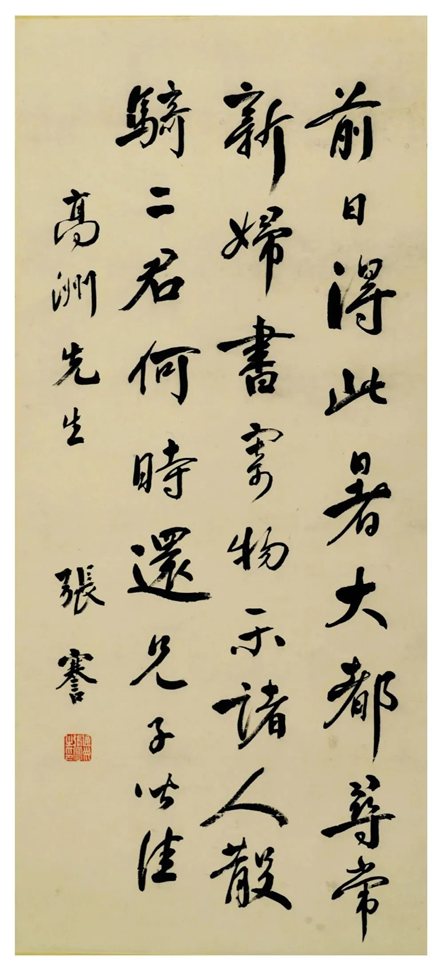 前日得此暑大都尋常
新婦書寄物示諸人散
騎二君何時還兄子皆佳
高洲先生 張謇